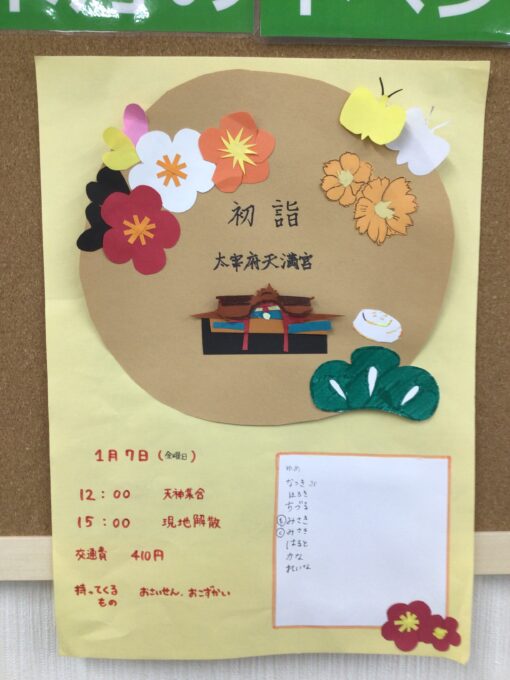 初詣
太宰府天満宮
1月7日(金曜日)
12:00 天神集合
15:00 現地解散
交通費 410円
持ってくるもの おさいせん、おこずかい
ゆめ
なつき
はるき
ちづる
みさき
みさき
はると
かな
れいな